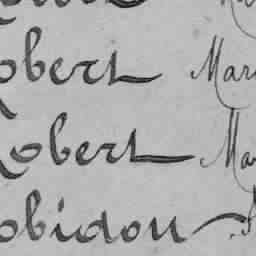 obert Mar
Robert Ma
obidou